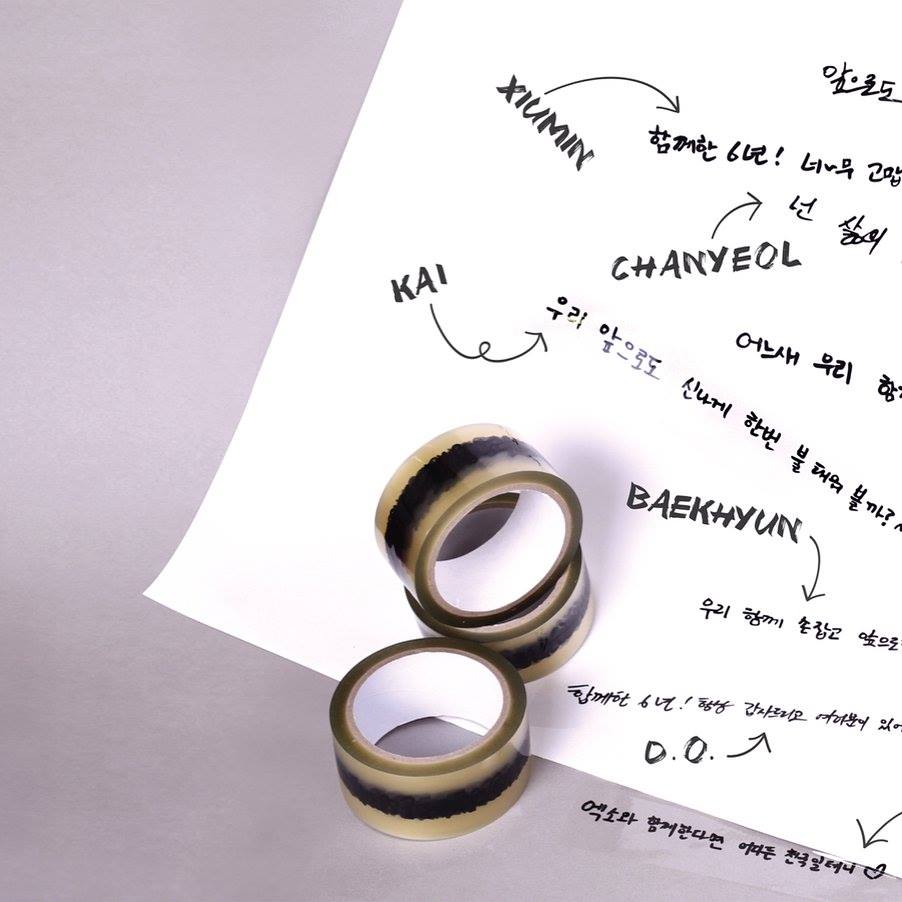 앞으로도
XIUMIN
함께한 6년! 너무 고맙
넌 삶의
CHANYEOL
KAI
우리 앞으로도 신나게 한번 불태워 볼까?
어느새 우리 함께
BAEKHYUN
우리 함께 손잡고 앞으로
함께한 6년! 항상 감사드리고 여러분이 있어
D.O.
엑소와 함께한다면 어디든 천국일테니 ♡